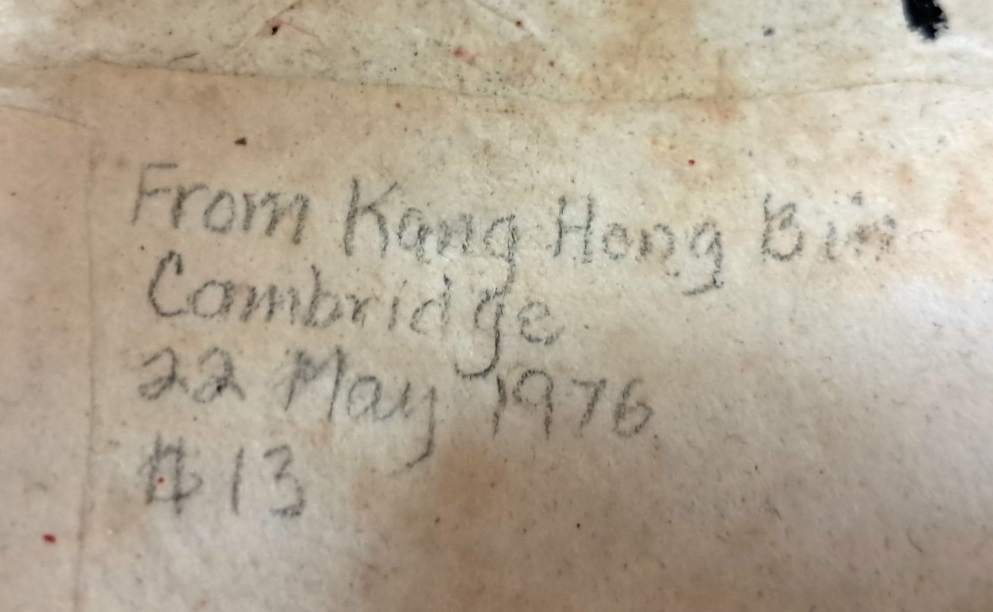 From Kang Hong Bin
Cambridge
22 May 1976
$13